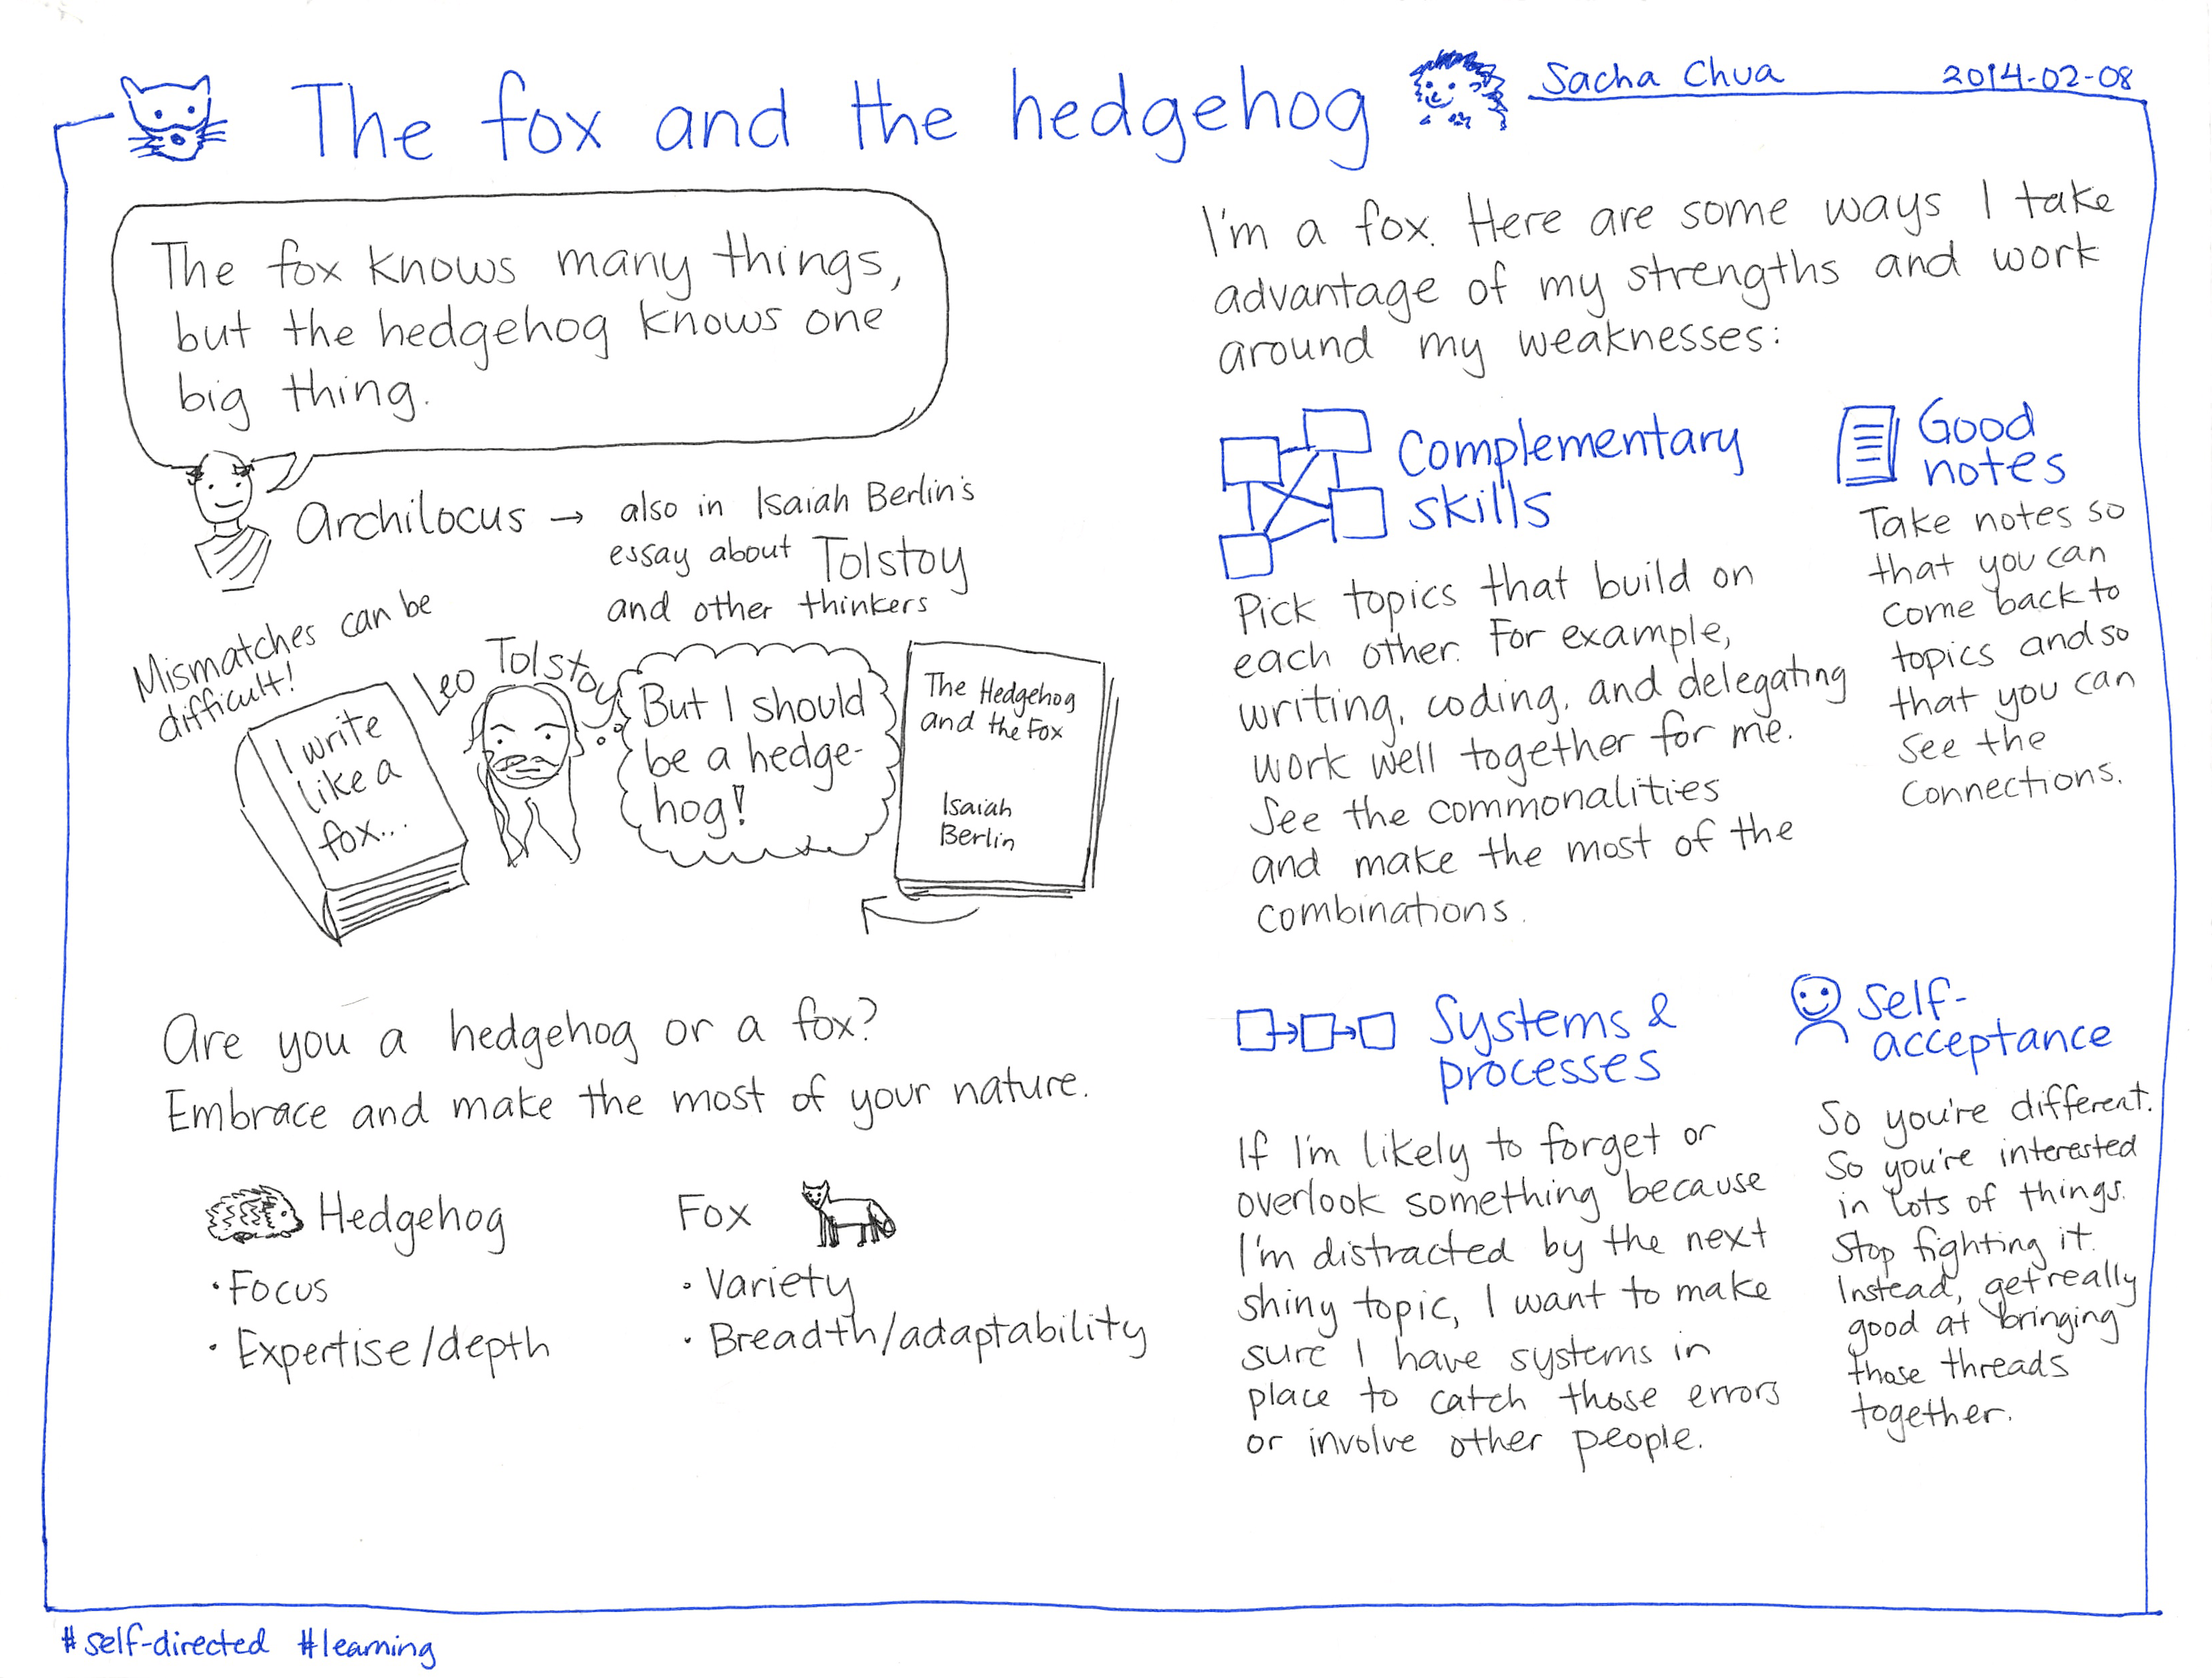 The fox and the hedgehog
Sacha Chua
2014-02-08
The fox knows many things,
but the hedgehog knows one
big thing.
Archilocus → also in Isaiah Berlin's
essay about Tolstoy
and other thinkers
Mismatches can be
difficult!
I write
like a
fox...
Leo Tolstoy
But I should
be a hedge-
hog!
The Hedgehog
and the Fox
Isaiah
Berlin
Are you a hedgehog or a fox?
Embrace and make the most of your nature.
Hedgehog
• Focus
• Expertise/depth
Fox
• Variety
• Breadth/adaptability
I'm a fox. Here are some ways I take
advantage of my strengths and work
around my weaknesses:
Complementary
skills
Pick topics that build on
each other. For example,
writing, coding, and delegating
work well together for me.
See the commonalities
and make the most of the
combinations.
Good
notes
Take notes so
that you can
come back to
topics and so
that you can
see the
connections.
Systems &
processes
If I'm likely to forget or
overlook something because
I'm distracted by the next
shiny topic, I want to make
sure I have systems in
place to catch those errors
or involve other people.
Self-
acceptance
So you're different.
So you're interested
in lots of things.
Stop fighting it.
Instead, get really
good at bringing
those threads
together.
#self-directed #learning